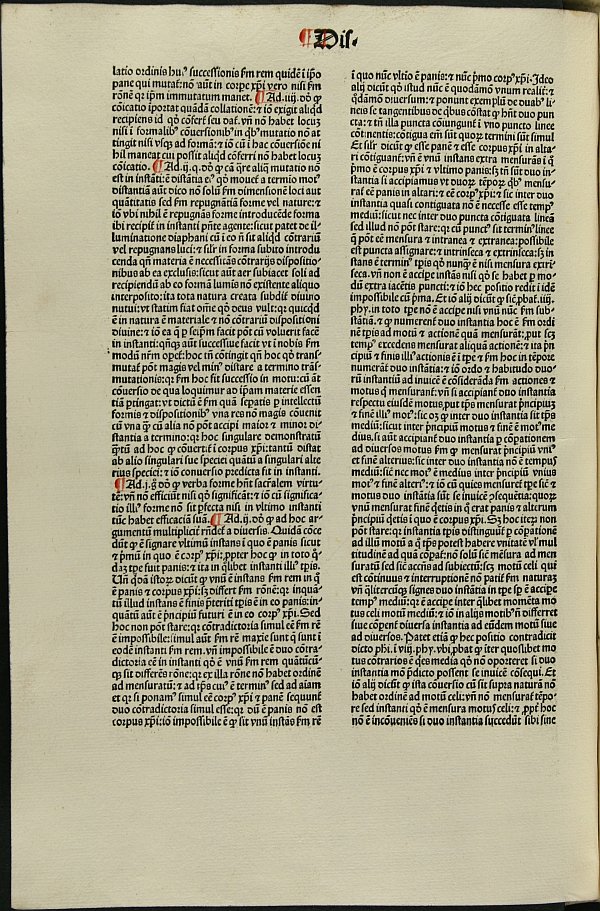 ¶ Dis.
latio ordinis huiꝰ successionis ẜm rem quidē i ip̄o
pane qui mutaf̄: nō aūt in corꝑe xp̄i vero nisi ẜm
rōnē qꝛ ip̄m immutatum manet. ¶ Ad .iiij. dō ꝙ
cōicatio iportat quādā collationē: ⁊ iō exigit aliqd̄
recipiens id qd̄ cōferf̄ seu daf̄. vn̄ nō habet locuꝫ
nisi i formalibꝰ cōuersionibꝰ in qͥbꝰ mutatio nō at
tingit nisi vsqꝫ ad formā: ⁊ iō cū i hac cōuersiōe ni
hil maneat cui possit aliqd̄ cōferri nō habet locuꝫ
cōicatio. ¶ Ad .ij. q. dō ꝙ cā qͣre aliq̄ mutatio nō
est in instāti: ē distātia eiꝰ qd̄ mouef̄ a termio motꝰ
distantiā aūt dico nō solū ẜm dimensionē loci aut
quātitatis sed ẜm repugnātiā forme vel nature: ⁊
iō vbi nihil ē repugnās forme introducēde forma
ibi recipif̄ in instanti pn̄te agente: sicut patet de il-
luminatione diaphani cū i eo n̄ sit aliqd̄ cōtrariū
vel repugnans luci: ⁊ silr̄ in forma subito introdu
cenda qn̄ materia ē necessitās cōtrarijs dispositio-
nibus ab ea exclusis: sicut aūt aer subiacet soli ad re
cipiendū ab eo formā luminis nō existente aliquo
interposito: ita tota natura creata subdif̄ diuino
nutui: vt statim fiat om̄e qd̄ deus vult: qꝛ quicqd̄
ē in natura ē materiale ⁊ nō cōtrariū dispositioni
diuine: ⁊ iō ea q̄ ꝑ seip̄m facit pōt cū voluerit facē
in instanti: qn̄qꝫ aūt successiue facit vt i nobis ẜm
modū nr̄m opef̄: hoc tn̄ cōtingit qn̄ hoc qd̄ trans-
mutaf̄ pōt magis vel minꝰ distare a termino trās-
mutationis: qꝛ ẜm hoc fit successio in motu: cū aūt
cōuersio de qua loquimur ao ip̄am materie essen
tiā ꝑtingat: vt dictū ē ẜm quā sepatis ꝑ intellectū
formis ⁊ dispositionibꝰ vna res nō magis cōuenit
cū vna qͣ cū alia nō pōt accipi maior ⁊ minor di-
stantia a termino: qꝛ hoc singulare demonstratū
qm̄tū ad hoc ꝙ cōuertif̄ i corpus xp̄i: tantū distat
ab alio singulari sue speciei quātū a singulari alte
rius speciei: ⁊ iō conuersio predicta fit in instanti.
¶ Ad .j. q̄ dō ꝙ verba forme hn̄t sacr̄alem virtu-
tē: vn̄ nō efficiūt nisi qd̄ significāt: ⁊ iō cū significa-
tio illiꝰ forme nō sit ꝑfecta nisi in vltimo instanti
tūc habet efficaciā suā. ¶ Ad .ij. dō ꝙ ad hoc ar-
gumentū multiplicit̄ rn̄def̄ a diuersis. Quidā cōce
dūt ꝙ ē signare vltimū instans i quo ē panis sicut
⁊ pͥmū in quo ē corpꝰ xp̄i: ꝓpter hoc ꝙ in toto qͦ-
daꝫ tp̄e fuit panis: ⁊ ita in qͦlibet instanti illiꝰ tp̄is.
Un̄ qͥdā istoꝝ dicūt ꝙ vnū ē instans ẜm rem in qͦ
ē panis ⁊ corpus xp̄i: sꝫ differt ẜm rōnē: qꝛ inquā-
tū illud instans ē finis p̄teriti tp̄is ē in eo panis: in-
quātū aūt ē pͥncipiū futuri ē in eo corpꝰ xp̄i. Sed
hoc non pōt stare: qꝛ cōtradictoria simul eē ẜm rē
ē impossibile: simul aūt ẜm rē maxie sunt q̄ sunt i
eodē instanti ẜm rem. vn̄ impossibile ē duo cōtra-
dictoria eē in instanti qd̄ ē vnū ẜm rem quātūcū-
qꝫ sit differēs rōne: qꝛ ex illa rōne nō habet ordinē
ad mensuratū: ⁊ ad ip̄s cuiꝰ ē terminꝰ sed ad aīam
et qꝛ si ponam̄ simul ē corpꝰ xp̄i ⁊ panē sequunt̄
duo cōtradictoria simul esse: qꝛ dū ē panis nō est
corpus xp̄i: iō impossibile ē ꝙ sit vnū instās ẜm rē
ī quo nūc vltīo ē panis: ⁊ nūc pͥmo corpꝰ xp̄i. Ideo
alij dicūt qd̄ istud nūc ē quodāmō vnum realit̄: ⁊
qͦdāmō diuersum: ⁊ ponunt exemplū de duabꝰ li-
neis se tangentibus de qͥbus cōstat ꝙ hn̄t duo pun
cta: ⁊ tn̄ illa puncta cōiungunt̄ i vno puncto linee
cōtinentis: cōtigua em̄ sūt quoꝝ termini sūt simul
Et silr̄ dicūt ꝙ esse panē ⁊ esse corpus xp̄i in alta-
ri cōtiguant̄: vn̄ ē vnū instans extra mensurās i qͦ
pͥmo ē corpus xp̄i ⁊ vltimo panis: sꝫ tn̄ sūt duo in-
stantia si accipiamus vt duoꝝ tēpoꝝ qͥbꝰ mensu-
raf̄ eē panis in altari: ⁊ eē corpꝰ xp̄i: ⁊ sic inter duo
instantia quasi contiguata nō ē necesse esse tempꝰ
mediū: sicut nec inter duo puncta cōtiguata lineā
sed illud nō pōt stare: qꝛ cū punctꝰ sit terminꝰ linee
q̄ pōt eē mensura ⁊ intranea ⁊ extranea: possibile
est puncta assignare: ⁊ intrinseca ⁊ extrinseca: sꝫ in
stans ē terminꝰ tp̄is qd̄ nunqͣ ē nisi mensura extri-
seca. vn̄ non ē accipe instās nisi qd̄ se habet ꝑ mo-
dū extra iacētis puncti: ⁊ iō hec positio redit i idē
impossibile cū pͥma. Et iō alij dicūt ꝙ sic pbaf̄ .iiij.
phy. in toto tp̄e nō ē accipe nisi vnū nūc ẜm sub-
stātiā. ⁊ ꝙ numerenf̄ duo instantia hoc ē ẜm ordi
nē tp̄is ad motū ⁊ actionē quā mensurāt: ꝓut scꝫ
tempꝰ excedens mensurat aliquā actionē: ⁊ ita pͥn
cipiū ⁊ finis illiꝰ actionis ē i tp̄e ⁊ ẜm hoc in tēpore
numerāt duo instātia: ⁊ iō ordo ⁊ habitudo duo-
rū instantiū ad inuicē ē cōsiderāda ẜm actiones ⁊
motus q̄ mensurant̄. vn̄ si accipiant̄ duo instantia
respectu eiusdē motus, put tp̄s mensurat pͥncipiuꝫ
⁊ finē illiꝰ motꝰ: sic oꝫ ꝙ inter duo instātia sit tp̄s
mediū: sicut inter pͥncipiū motus ⁊ finē ē motꝰ me
dius. si aūt accipiant̄ duo instantia ꝑ cōpationem
ad diuersos motus ẜm ꝙ mensurat pͥncipiū vniꝰ
et finē alterius: sic inter duo instantia nō ē tempus
mediū: sic nec motꝰ ē medius inter pͥncipiū vnius
motꝰ ⁊ finē alteriꝰ: ⁊ iō cū quies mensuref̄ tp̄e sic ⁊
motus duo instātia sūt se inuicē ꝯsequētia: quoꝝ
vnū mensurat finē qͥetis in qͦ erat panis ⁊ alterum
pͥncipiū qͥetis i quo ē corpus xp̄i. Sꝫ hoc iteꝝ non
pōt stare: qꝛ instantia tp̄is distinguūt̄ ꝑ cōpationē
ad illū motū a qͦ tp̄s potest habere vnitatē vl̓ mul
titudinē ad quā cōpaf̄: nō solū sic mēsura ad men
suratū sed sic accn̄s ad subiectū: scꝫ motū celi qui
est continuus ⁊ interruptionē nō patif̄ ẜm naturaꝫ
vn̄ qͣlitercūqꝫ signes duo instātia in tp̄e sp̄ ē accipe
tempꝰ mediū: qꝛ ē accipe inter qͦlibet momēta mo
tus celi motū mediū: ⁊ iō in alijs motibꝰ n̄ differret
siue cōpenf̄ diuersa instantia ad eūdem motū siue
ad diuersos. Patet etiā ꝙ hec positio contradicit
dicto phi. i .viij. phy. vbi pbat ꝙ iter quoslibet mo
tus cōtrarios ē qͥes media qd̄ nō oporteret si duo
instantia mō p̄dicto possent se inuicē cōsequi. Et
iō alij dicūt ꝙ ista cōuersio cū sit supra naturā nō
habet ordinē ad motū celi: vn̄ nō mensuraf̄ tēpo-
re sed instanti qd̄ ē mensura motus celi: ⁊ ꝓpt̄ hoc
nō ē incōueniēs si duo instantia succedūt sibi sine